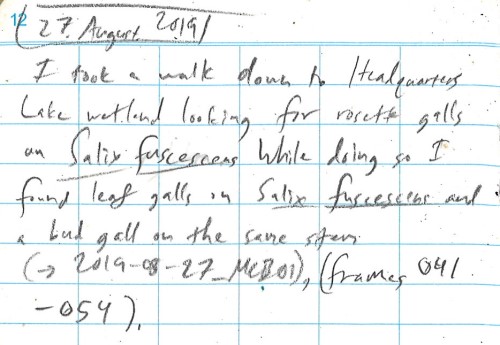 12
27 August 2019
I took a walk down to Headquarters
Lake wetland looking for rosette galls
on Salix fuscescens While doing so I
found leaf galls on Salix fuscescens and
a bud gall on the same stem
(→ 2019-08-27_MLB01), (frames 041
-054).